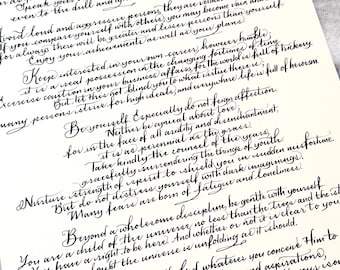 Speak your
even to the dull and
Avoid loud and aggressive persons, they are vexatious
If you compare yourself with others, you may become vain and
for always there will be greater and lesser persons than yourself.
Enjoy your achievements as well as your plans.
Keep interested in your own career, however humble;
it is a real possession in the changing fortunes of time.
Exercise caution in your business affairs, for the world is full of trickery.
But let this not blind you to what virtue there is;
many persons strive for high ideals, and everywhere life is full of heroism.
Be yourself. Especially do not feign affection.
Neither be cynical about love,
for in the face of all aridity and disenchantment,
it is as perennial as the grass.
Take kindly the counsel of the years,
gracefully surrendering the things of youth.
Nurture strength of spirit to shield you in sudden misfortune.
But do not distress yourself with dark imaginings.
Many fears are born of fatigue and loneliness.
Beyond a wholesome discipline, be gentle with yourself.
You are a child of the universe no less than the trees and the
you have a right to be here. And whether or not it is clear to you
no doubt the universe is unfolding as it should.
whatever you conceive Him to
aspirations,